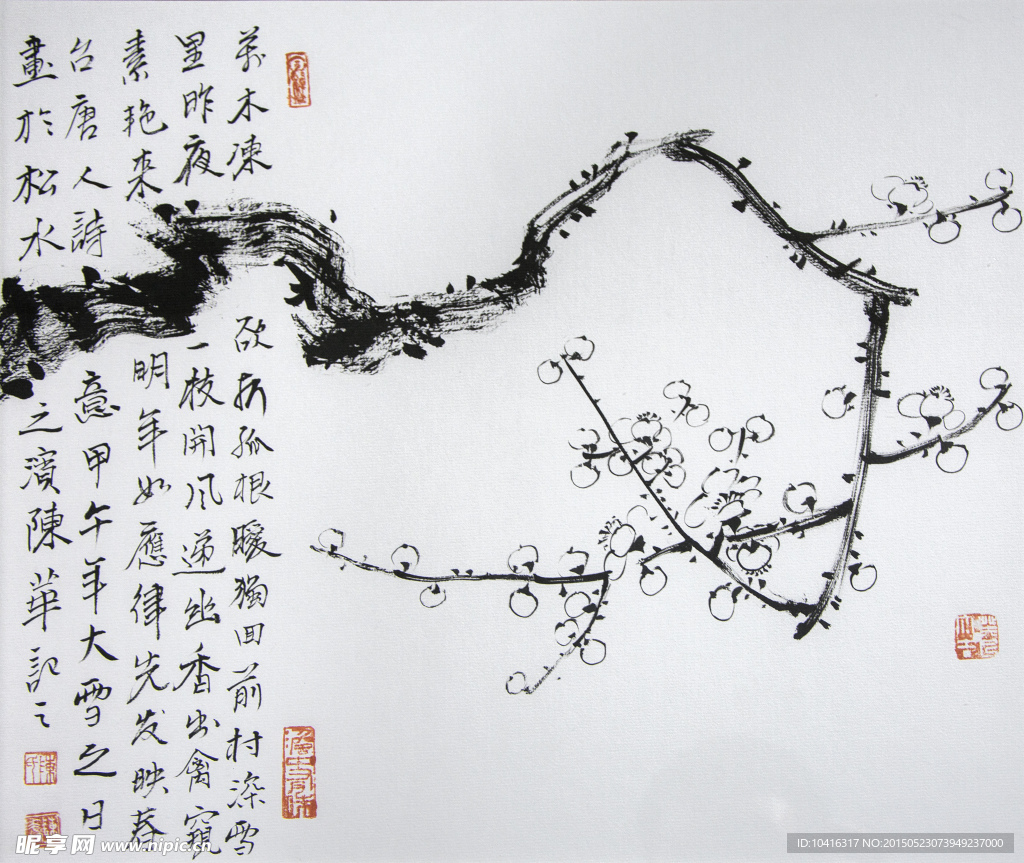 萬木凍欲折孤根暖獨回前村深雪
里昨夜一枝開风递幽香出禽窺
素艳来明年如應律先发映春
台唐人詩意甲午年大雪之日
畫於松水之濱陳華記之
昵享网 www.nipic.cn
ID:10416317 NO:20150523073949237000